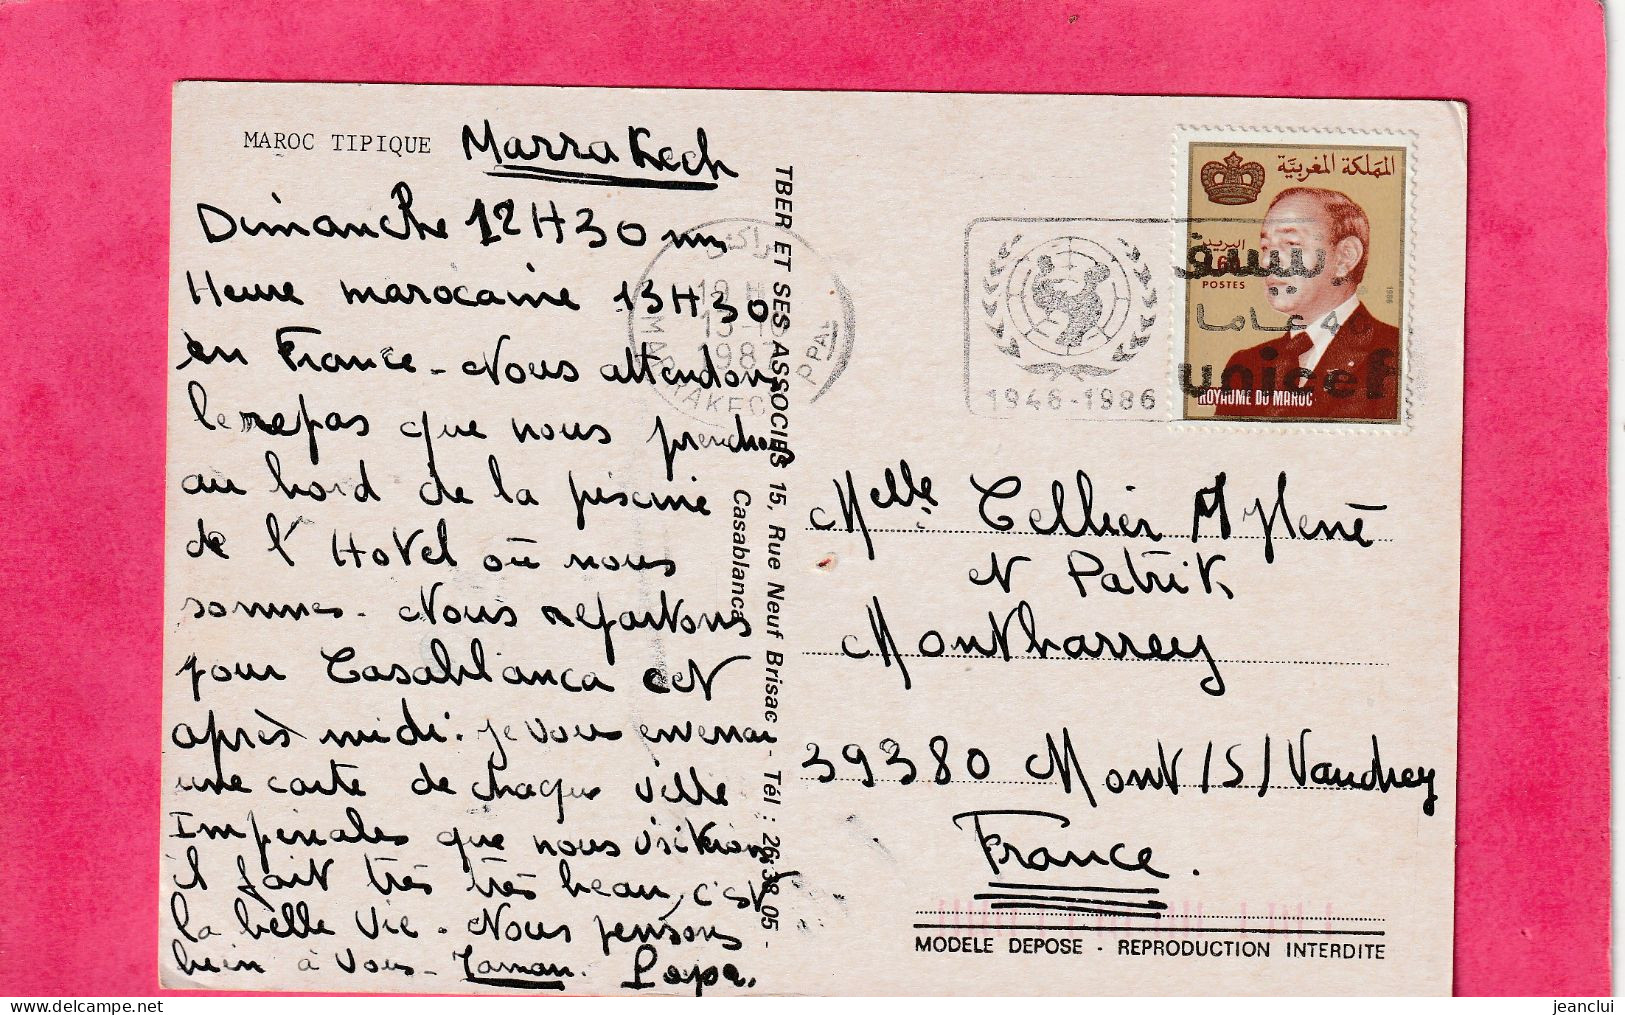 MAROC TIPIQUE Marrakech
Dimanche 12H30
Heure marocaine 13H30
en France - Nous attendons
le repas que nous prendrons
au bord de la piscine
de l'Hotel où nous
sommes. Nous repartons
pour Casablanca cet
après midi. Je vous enverrai
une carte de chaque ville
Imperiales que nous visitions
il fait très très beau, c'est
la belle vie. Nous pensons
bien à vous - Maman. Papa.
TBER ET SES ASSOCIES 15, Rue Neuf Brisac - Tél : 26.38.05 -
Casablanca
مراكش
19 H
13-10
1987
MARRAKECH PPAL
1946-1986
يونيسف
40 عاما
unicef
المملكة المغربية
البريد
1,60
POSTES
1986
ROYAUME DU MAROC
Melle Cellier Mylène
et Patrik
Montbarrey
39380 Mont/S/Vaudrey
France.
MODELE DEPOSE - REPRODUCTION INTERDITE
jeanclui